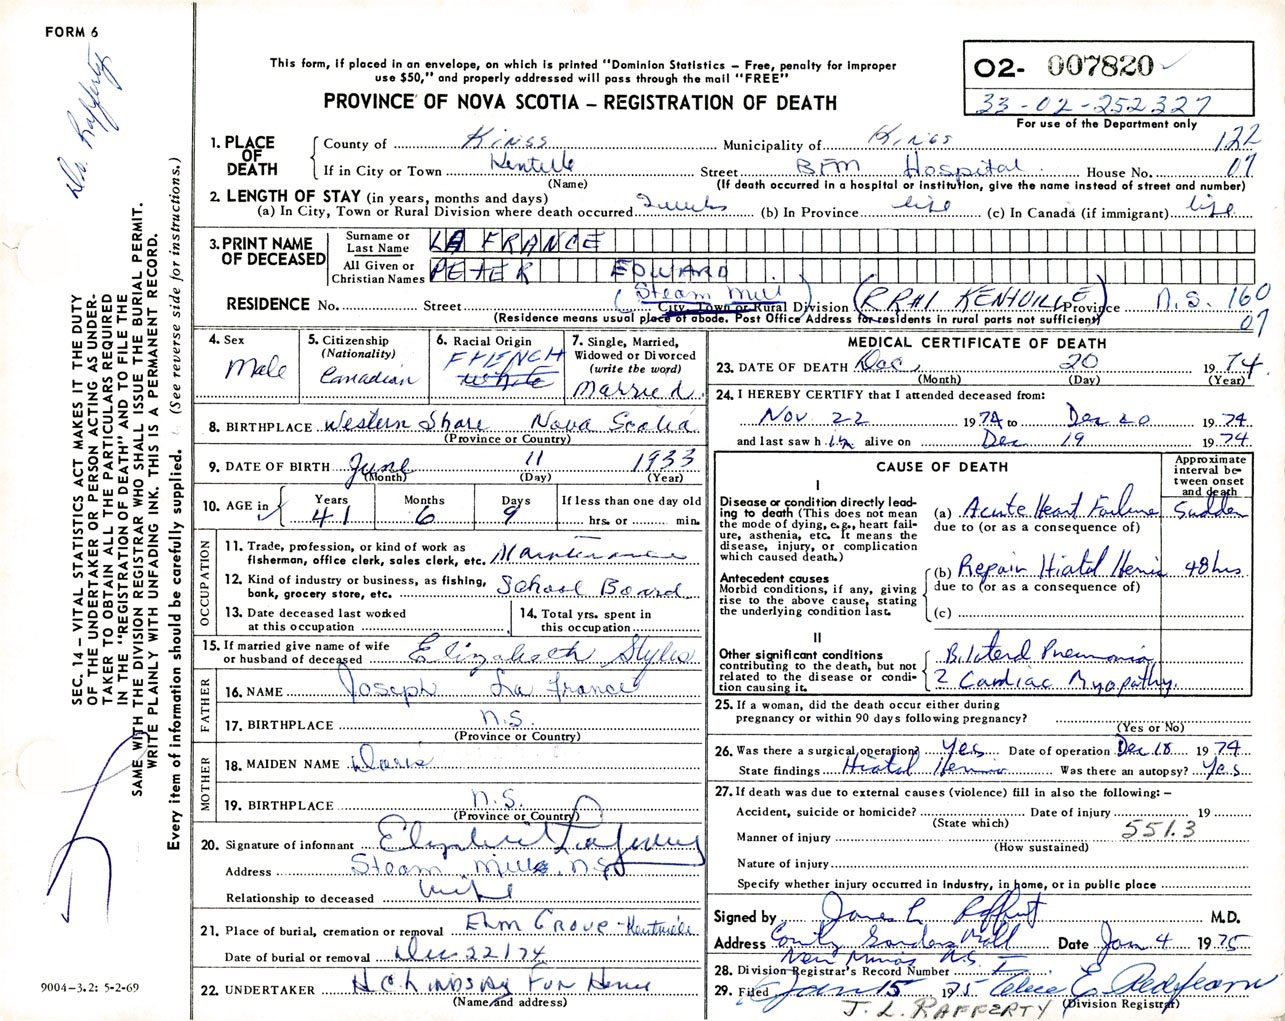 FORM 6
This form, if placed in an envelope, on which is printed "Dominion Statistics – Free, penalty for improper
use $50," and properly addressed will pass through the mail "FREE"
PROVINCE OF NOVA SCOTIA – REGISTRATION OF DEATH
O2- 007820
33-02-252327
For use of the Department only
Dr. Rafferty
SEC. 14 – VITAL STATISTICS ACT MAKES IT THE DUTY
OF THE UNDERTAKER OR PERSON ACTING AS UNDER-
TAKER TO OBTAIN ALL THE PARTICULARS REQUIRED
IN THE "REGISTRATION OF DEATH" AND TO FILE THE
SAME WITH THE DIVISION REGISTRAR WHO SHALL ISSUE THE BURIAL PERMIT.
WRITE PLAINLY WITH UNFADING INK. THIS IS A PERMANENT RECORD.
Every item of information should be carefully supplied. (See reverse side for instructions.)
1. PLACE OF DEATH
County of Kings Municipality of Kings 122
If in City or Town Kentville Street BFM Hospital House No. 07
(Name) (If death occurred in a hospital or institution, give the name instead of street and number)
2. LENGTH OF STAY (in years, months and days)
(a) In City, Town or Rural Division where death occurred 2 weeks (b) In Province life (c) In Canada (if immigrant) life
3. PRINT NAME OF DECEASED
Surname or Last Name LA FRANCE
All Given or Christian Names PETER EDWARD
RESIDENCE No. Street (Steam Mill) City Town or Rural Division (RR#1 KENTVILLE) Province N.S. 160
(Residence means usual place of abode. Post Office Address for residents in rural parts not sufficient) 07
4. Sex
Male
5. Citizenship
(Nationality)
Canadian
6. Racial Origin
FRENCH
White
7. Single, Married,
Widowed or Divorced
(write the word)
Married
8. BIRTHPLACE Western Shore Nova Scotia
(Province or Country)
9. DATE OF BIRTH June 11 1933
(Month) (Day) (Year)
10. AGE in
Years Months Days If less than one day old
41 6 9 hrs. or min.
OCCUPATION
11. Trade, profession, or kind of work as
fisherman, office clerk, sales clerk, etc. Maintenance
12. Kind of industry or business, as fishing,
bank, grocery store, etc. School Board
13. Date deceased last worked
at this occupation
14. Total yrs. spent in
this occupation
15. If married give name of wife
or husband of deceased Elizabeth Styles
FATHER
16. NAME Joseph La France
17. BIRTHPLACE N.S.
(Province or Country)
MOTHER
18. MAIDEN NAME
19. BIRTHPLACE N.S.
(Province or Country)
20. Signature of informant Elizabeth LaFrance
Address Steam Mills, N.S.
Relationship to deceased wife
21. Place of burial, cremation or removal ELM GROVE - Kentville
Date of burial or removal Dec 22/74
22. UNDERTAKER H.C. LINDSAY FUN Home
(Name and address)
9004–3.2: 5-2-69
MEDICAL CERTIFICATE OF DEATH
23. DATE OF DEATH Dec, 20 1974.
(Month) (Day) (Year)
24. I HEREBY CERTIFY that I attended deceased from:
Nov. 22 1974 to Dec 20 1974
and last saw h im alive on Dec 19 1974
CAUSE OF DEATH
Approximate
interval be-
tween onset
and death
I
Disease or condition directly lead-
ing to death (This does not mean
the mode of dying, e.g., heart fail-
ure, asthenia, etc. It means the
disease, injury, or complication
which caused death.)
(a) Acute Heart Failure Sudden
due to (or as a consequence of)
Antecedent causes
Morbid conditions, if any, giving
rise to the above cause, stating
the underlying condition last.
(b) Repair Hiatal Hernia 48 hrs
due to (or as a consequence of)
(c)
II
Other significant conditions
contributing to the death, but not
related to the disease or condi-
tion causing it.
Bilateral Pneumonia
2 Cardiac Myopathy.
25. If a woman, did the death occur either during
pregnancy or within 90 days following pregnancy?
(Yes or No)
26. Was there a surgical operation? Yes Date of operation Dec 18 1974
State findings Hiatal Hernia Was there an autopsy? Yes
27. If death was due to external causes (violence) fill in also the following: –
Accident, suicide or homicide? Date of injury 19
(State which) 551.3
Manner of injury
(How sustained)
Nature of injury
Specify whether injury occurred in industry, in home, or in public place
Signed by James L Rafferty M.D.
Address County Gardens Mall Date Jan 4 1975
New Minas N.S.
28. Division Registrar's Record Number
29. Filed Jan 15 1975
(Division Registrar)
J. L. RAFFERTY